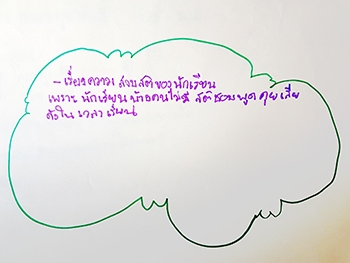 - เรื่องความ สามสติของนักเรียน
เพราะ นักเรียน บางคนไม่มี สติชอบพูด คุย เสีย
ดังใน เวลา เรียน